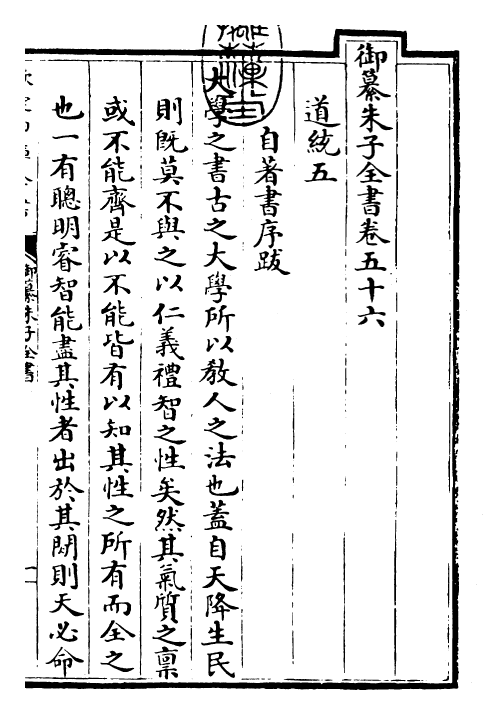 御纂朱子全書卷五十六
道統五
自著書序跋
大學之書古之大學所以敎人之法也蓋自天降生民
則既莫不與之以仁義禮智之性矣然其氣質之稟
或不能齊是以不能皆有以知其性之所有而全之
也一有聰明睿智能盡其性者出於其閒則天必命
御纂朱子全書